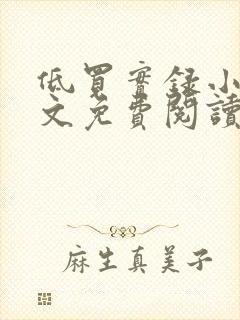 低買實錄小
文免費閱讀
麻生真美子